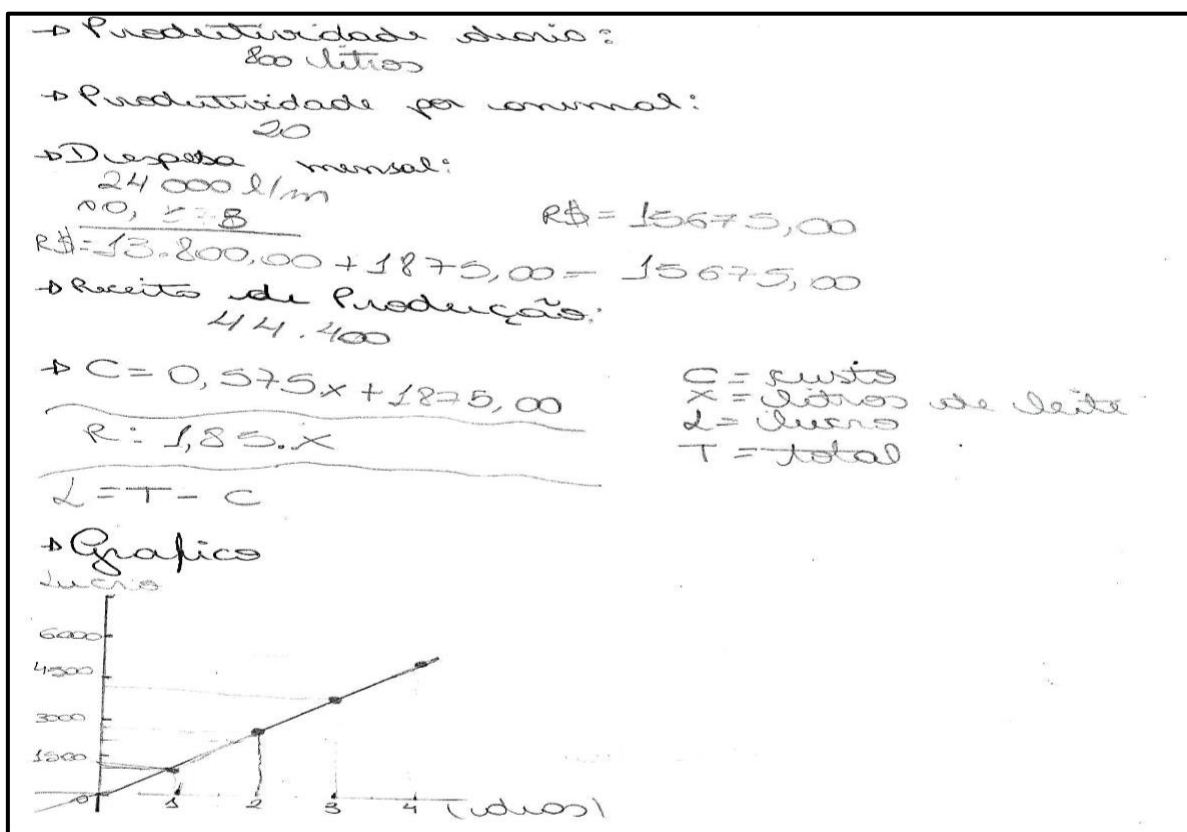 → Produtividade diaria:
800 litros
→ Produtividade por animal:
20
→ Despesa mensal:
24 000 l/m
R$ = 15675,00
R$=13.800,00 + 1875,00 = 15675,00
→ Receita de Produção:
44.400
→ C = 0,575.x + 1875,00
R: 1,85.x
L = T - C
C = custo
x = litros de leite
L = lucro
T = total
→ Grafico
Lucro
6000
4500
3000
1500
0
1 2 3 4 (dias)